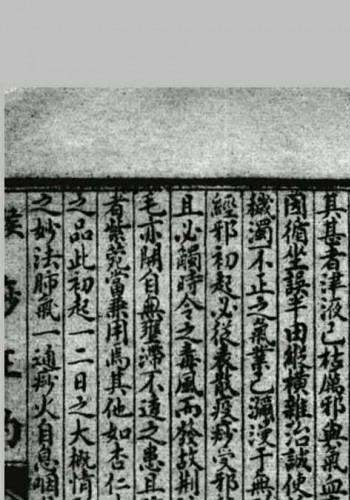 其甚者津液已枯厲邪與氣血
國循坐誤半由縱橫雜治誠使
穢濁不止之氣業已瀰漫于無
經邪初起必從表散疫痧受邪
且必觸時令之毒風而發故荆
毛亦開自無壅滯不達之患且
者紫菀當兼用焉其他如杏仁
之品此初起一二日之大概情形
之妙法肺氣一通痧火自息咽